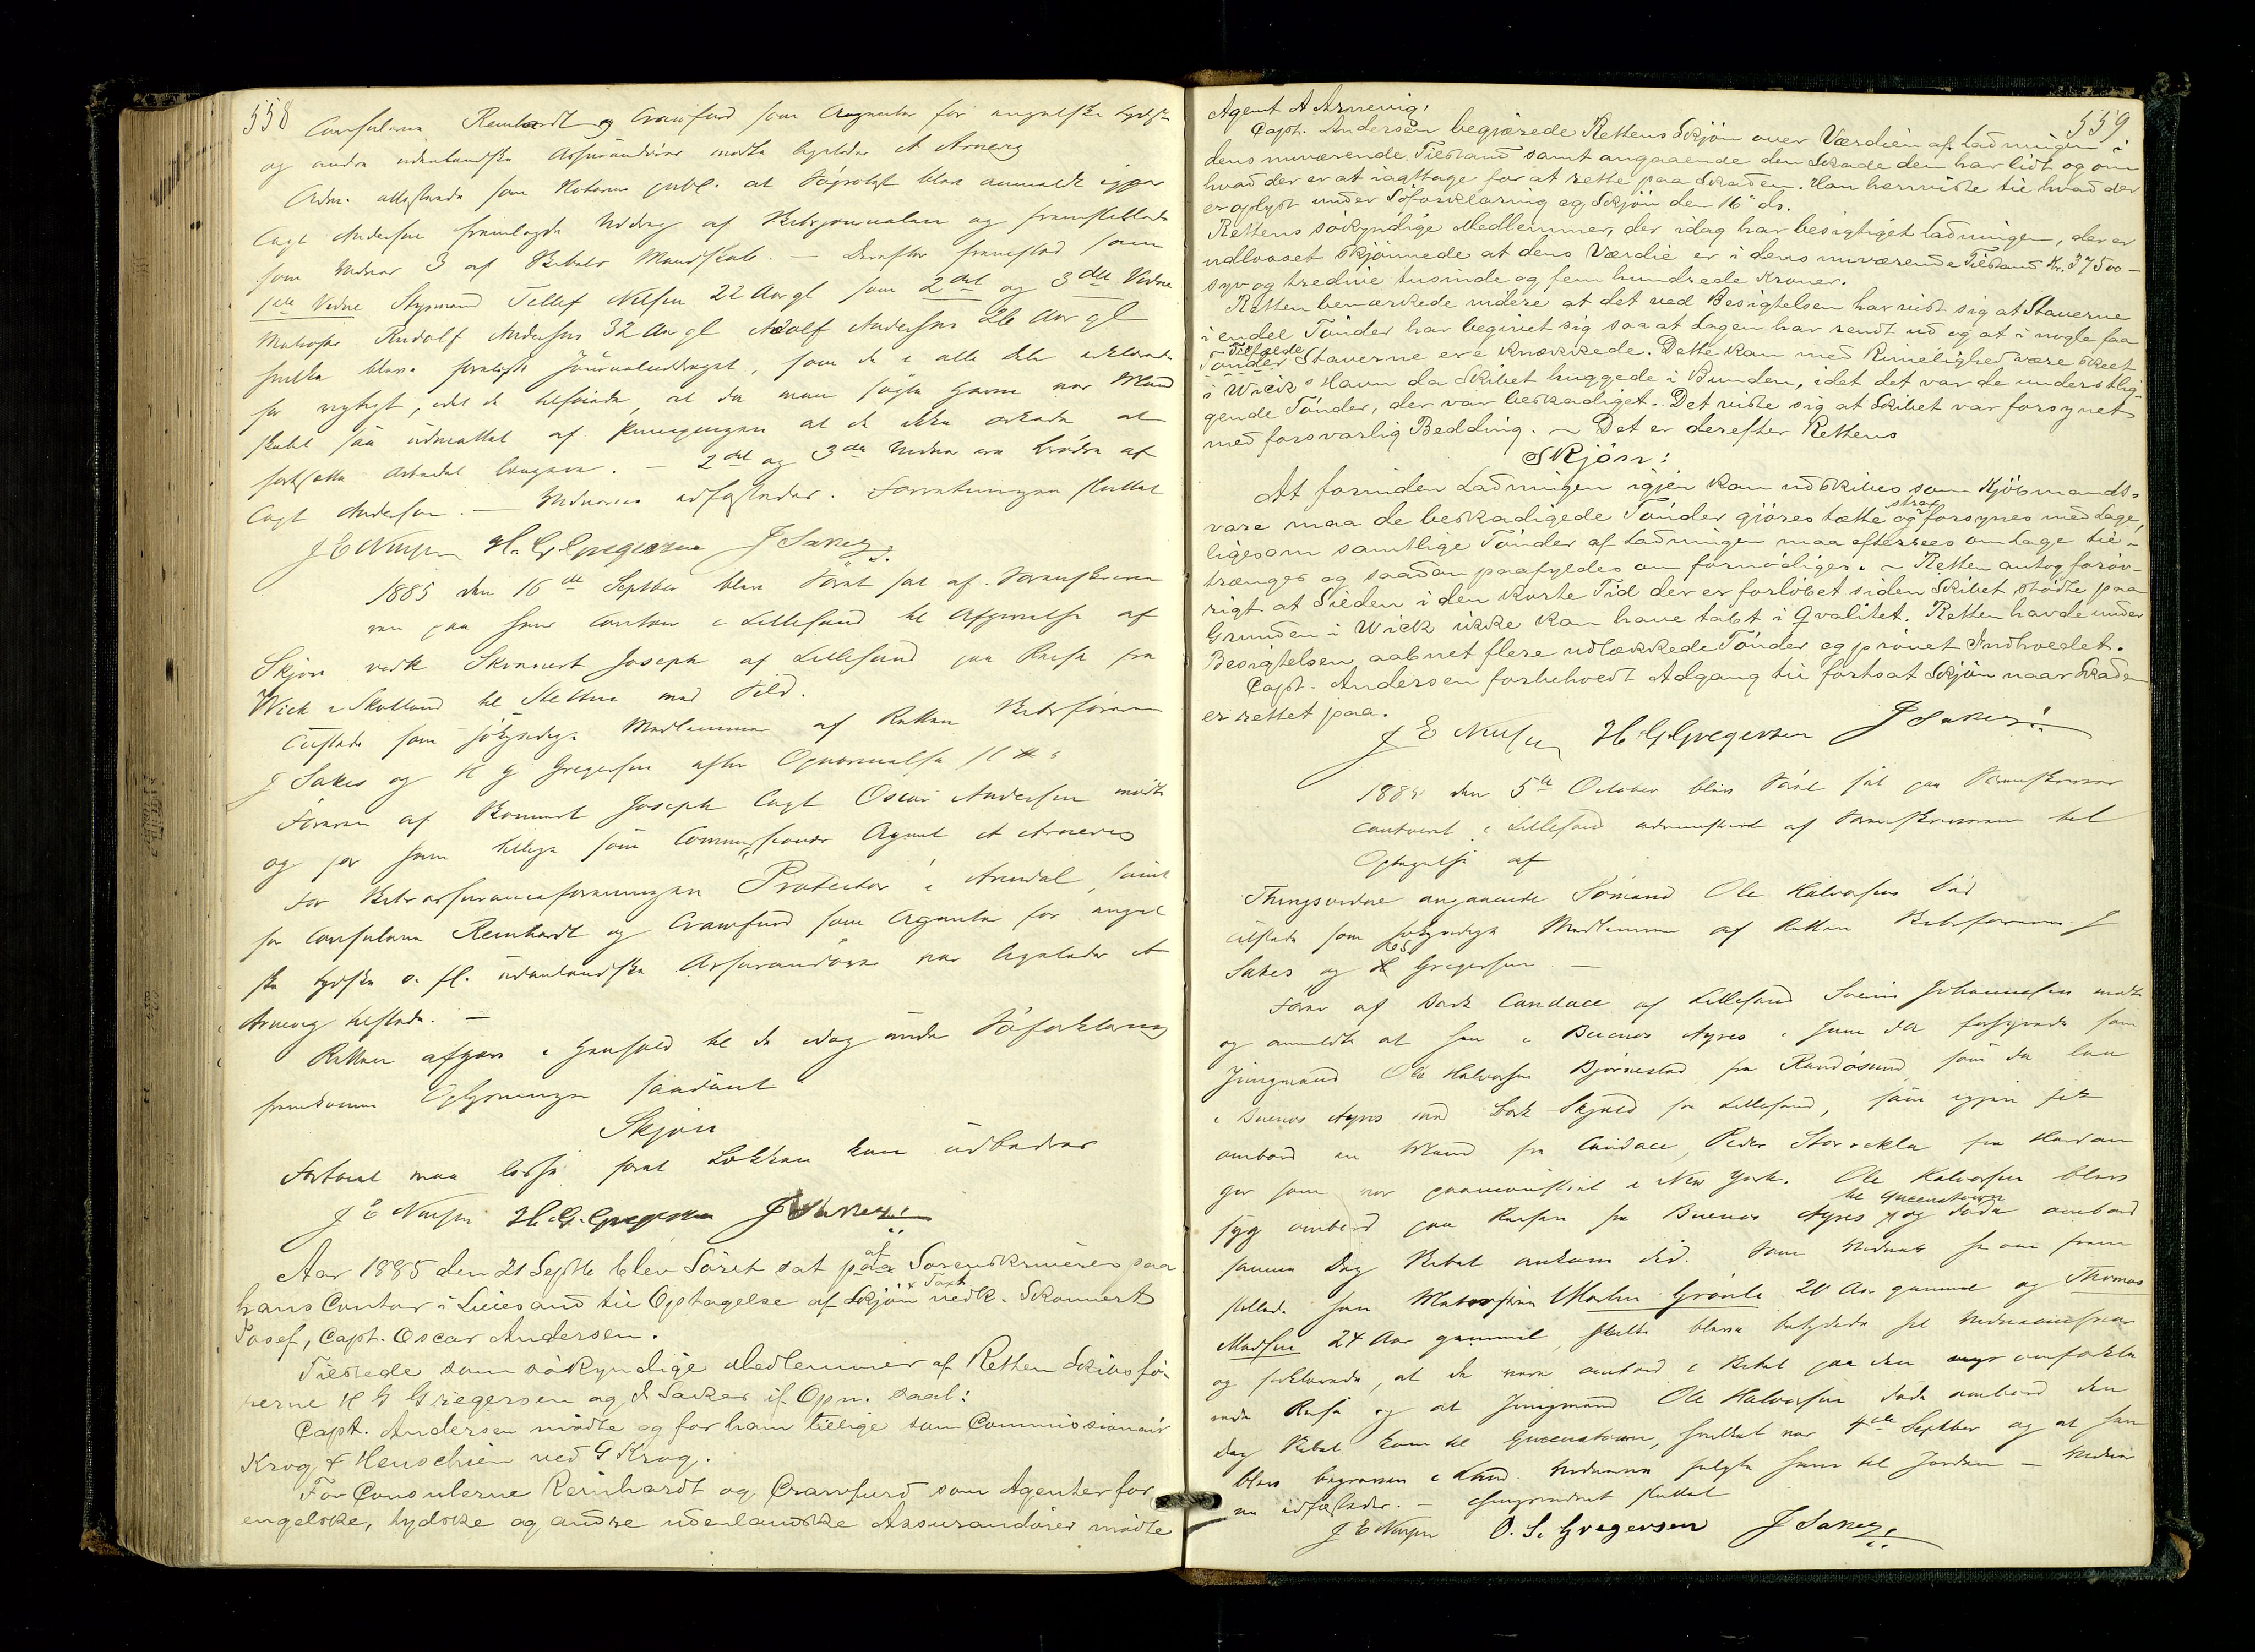 558
Consulerne Reinhardt og Crawfurd som Agenter for engelske tydske
og andre udenlandske Assurandörer mödte ligeledes A Arnevig
Adm. attesterede som Notarius publ. at Söprotest blev anmeldt igaar
Capt Andersen fremlagde Uddrag af Skibsjournalen og fremstillede
som Vidner 3 af Skibets Mandskab. — Derefter fremstod som
1ste Vidne Styrmand Tellef Nilsen 22 Aar gl som 2det og 3die Vidne
Matroser Rudolf Andersen 32 Aar gl Adolf Andersen 26 Aar gl
hvilke blev forelagt Journaluddraget, som de i alle dele erklærede
for rigtigt, idet de tilföiede, at da man sögte Havn var Mand
skabet saa udmattet af Pumpningen at de ikke orkede at
fortsætte Arbeidet længere. — 2det og 3die Vidne ere Brödre af
Capt Andersen. — Vidnerne edfæstedes. Forretningen sluttet
J E Nielsen H. G Gregersen J Saxes
1885 den 16de Septber blev Söret sat af Sorenskrive
ren paa hans Contor i Lillesand til Afgivelse af
Skjön vedk Skonnert Joseph af Lillesand paa Reise fra
Wick i Skotland til Stettin med Sild.
Tilstede som sökyndige Medlemmer af Retten Skibsförerne
J Saxes og H G Gregersen efter Opnævnelse
Föreren af Skonnert Joseph Capt Oscar Andersen mödte
og for ham tillige som Commissionær Agent A Arnevig
For Skibsassuranceforeningen "Protector" i Arendal, samt
for Consulerne Reinhardt og Crawfurd som Agenter for engel
ske tydske o. fl. udenlandske Assurandörer var ligeledes A
Arnevig tilstede. —
Retten afgav i Henhold til de idag under Söforklaring
fremkomne Oplysninger saadant
Skjön
Fartöiet maa losse forat Lækken kan udbedres
J E Nielsen H. G. Gregersen J Saxes
Aar 1885 den 21 Septb blev Söret sat paa af Sorenskriveren paa
hans Contor i Lillesand til Optagelse af Skjön & Taxt vedk. Skonnert
Josef, Capt. Oscar Andersen.
Tilstede som sökyndige Medlemmer af Retten Skibsfö-
rerne H G Gregersen og J Saxes if. Opn. saal:
Capt. Andersen mödte og for ham tillige som Commissionær
Krog & Henschien ved G Krog.
For Consulerne Reinhardt og Crawfurd som Agenter for
engelske, tydske og andre udenlandske Assurandörer mödte
559
Agent A Arnevig.
Capt. Andersen begjærede Rettens Skjön over Værdien af Ladningen i
dens nuværende Tilstand samt angaaende den Skade den har lidt og om
hvad der er at iagttage for at rette paa Skaden. Han henviste til hvad der
er oplyst under Söforklaring og Skjön den 16' ds.
Rettens sökyndige Medlemmer, der idag har besigtiget Ladningen, der er
udlosset skjönnede at dens Værdie er i dens nuværende Tilstand Kr. 37500 —
syv og tredive tusinde og fem hundrede Kroner.
Retten bemærkede videre at det ved Besigtelsen har vist sig at Staverne
i endel Tönder har beginet sig saa at Lagen har rendt ud og at i nogle faa
Tilfælde
Tönder Staverne ere knækkede. Dette kan med Rimelighed være skeet
i Wick's Havn da Skibet huggede i Bunden, idet det var de understlig-
gende Tönder, der var beskadiget. Det viste sig at Skibet var forsynet
med forsvarlig Bedding. — Det er derefter Rettens
Skjön:
At forinden Ladningen igjen kan udskibes som Kjöbmands-
vare maa de beskadigede Tönder gjöres tætte og strax forsynes med Lage,
ligesom samtlige Tönder af Ladningen maa eftersees om Lage til-
trænges og saadan paafyldes om fornödiges. — Retten antog foröv-
rigt at Silden i den korte Tid der er forlöbet siden Skibet stödte paa
Grunden i Wick ikke kan have tabt i Qvalitet. Retten havde under
Besigtelsen aabnet flere udlækkede Tönder og prövet Indholdet.
Capt. Andersen forbeholdt Adgang til fortsat Skjön naar Skaden
er rettet paa.
J E Nielsen H. G Gregersen J Saxes
1885 den 5te October blev Söret sat paa Sorenskriver
contoret i Lillesand administreret af Sorenskriveren til
Optagelse af
Thingsvidne angaaende Sömand Ole Halvorsens Död
Tilstede som sökyndige Medlemmer af Retten Skibsförerne J
Saxes og OS Gregersen —
Förer af Bark Candace af Lillesand Svein Johannesen mödte
og anmeldte at han i Buenos Ayres i Juni d A forhyrede som
Jungmand Ole Halvorsen Björnestad fra Randösund, som da laa
i Buenos Ayres med Bark Skjold fra Lillesand, som igjen fik
ombord en Mand fra Candace, Peder
ger som var paamönstret i New York. Ole Halvorsen blev
syg ombord paa Reisen fra Buenos Ayres til Queenstown og döde ombord
samme Dag Skibet ankom did. Som Vidner herom frem
stilled han Matroserne Martin Grönli 20 Aar gammel og Thomas
Madsen 24 Aar gammel, hvilke bleve betydede sit Vidneansvar
og forklarede, at de vare ombord i Skibet paa den omforkla
rede Reise og at Jungmand Ole Halvorsen döde ombord den
Dag Skibet kom til Queenstown, hvilket var 4de Septber og at han
blev begraven i Land. Vidnerne fulgte ham til Jorden — Vidner
ne edfæstedes. — Thingsvidnet sluttet
J E Nielsen O. S. Gregersen J Saxes